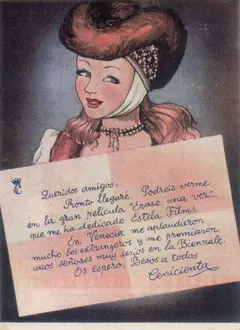 Queridos amigos:
Pronto llegaré. Podréis verme
en la gran película "Erase una vez..."
que me ha dedicado Estela Films.
En Venecia me aplaudieron
mucho los extranjeros y me premiaron
unos señores muy serios en la Biennale.
Os espero. Besos a todos
Cenicienta